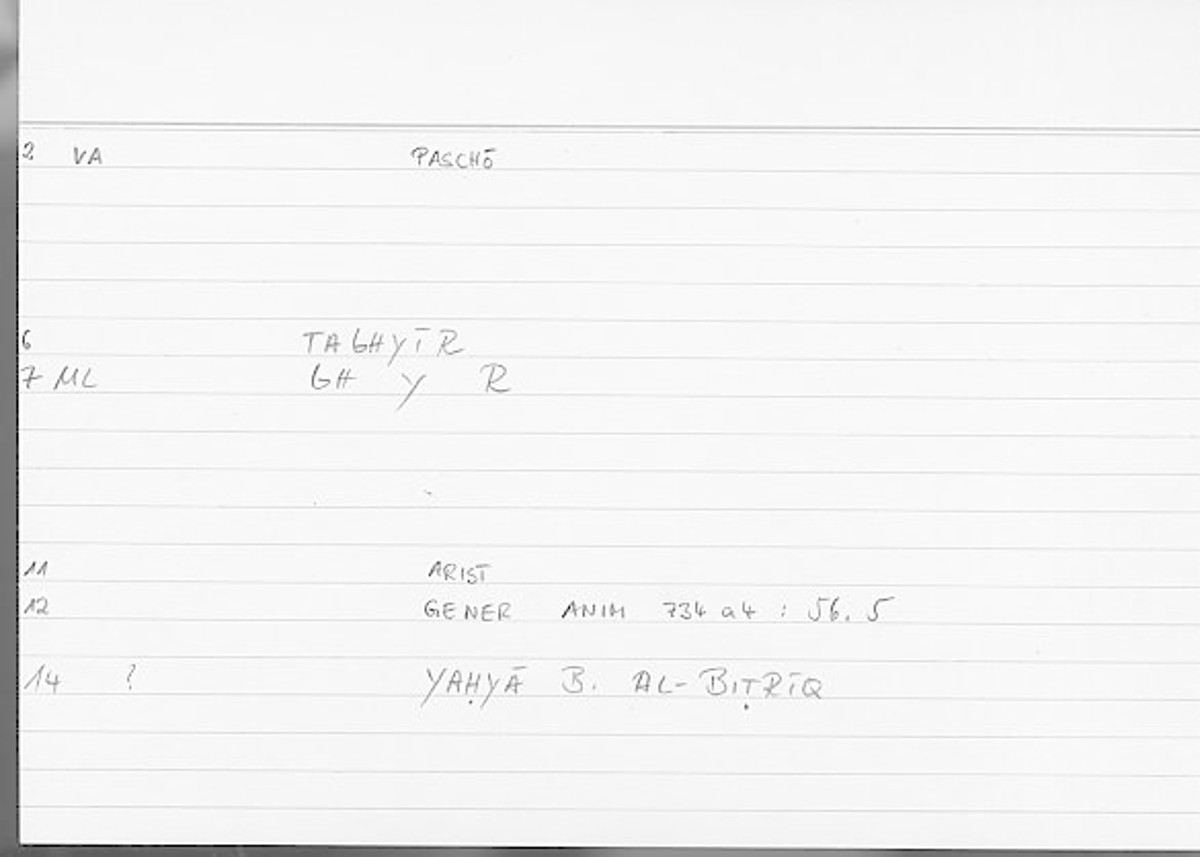 2 VA PASCHŌ
6 TAGHYĪR
7 ML GH Y R
11 ARIST
12 GENER ANIM 734 a4 : 56. 5
14 ? YAḤYĀ B. AL-BIṬRĪQ